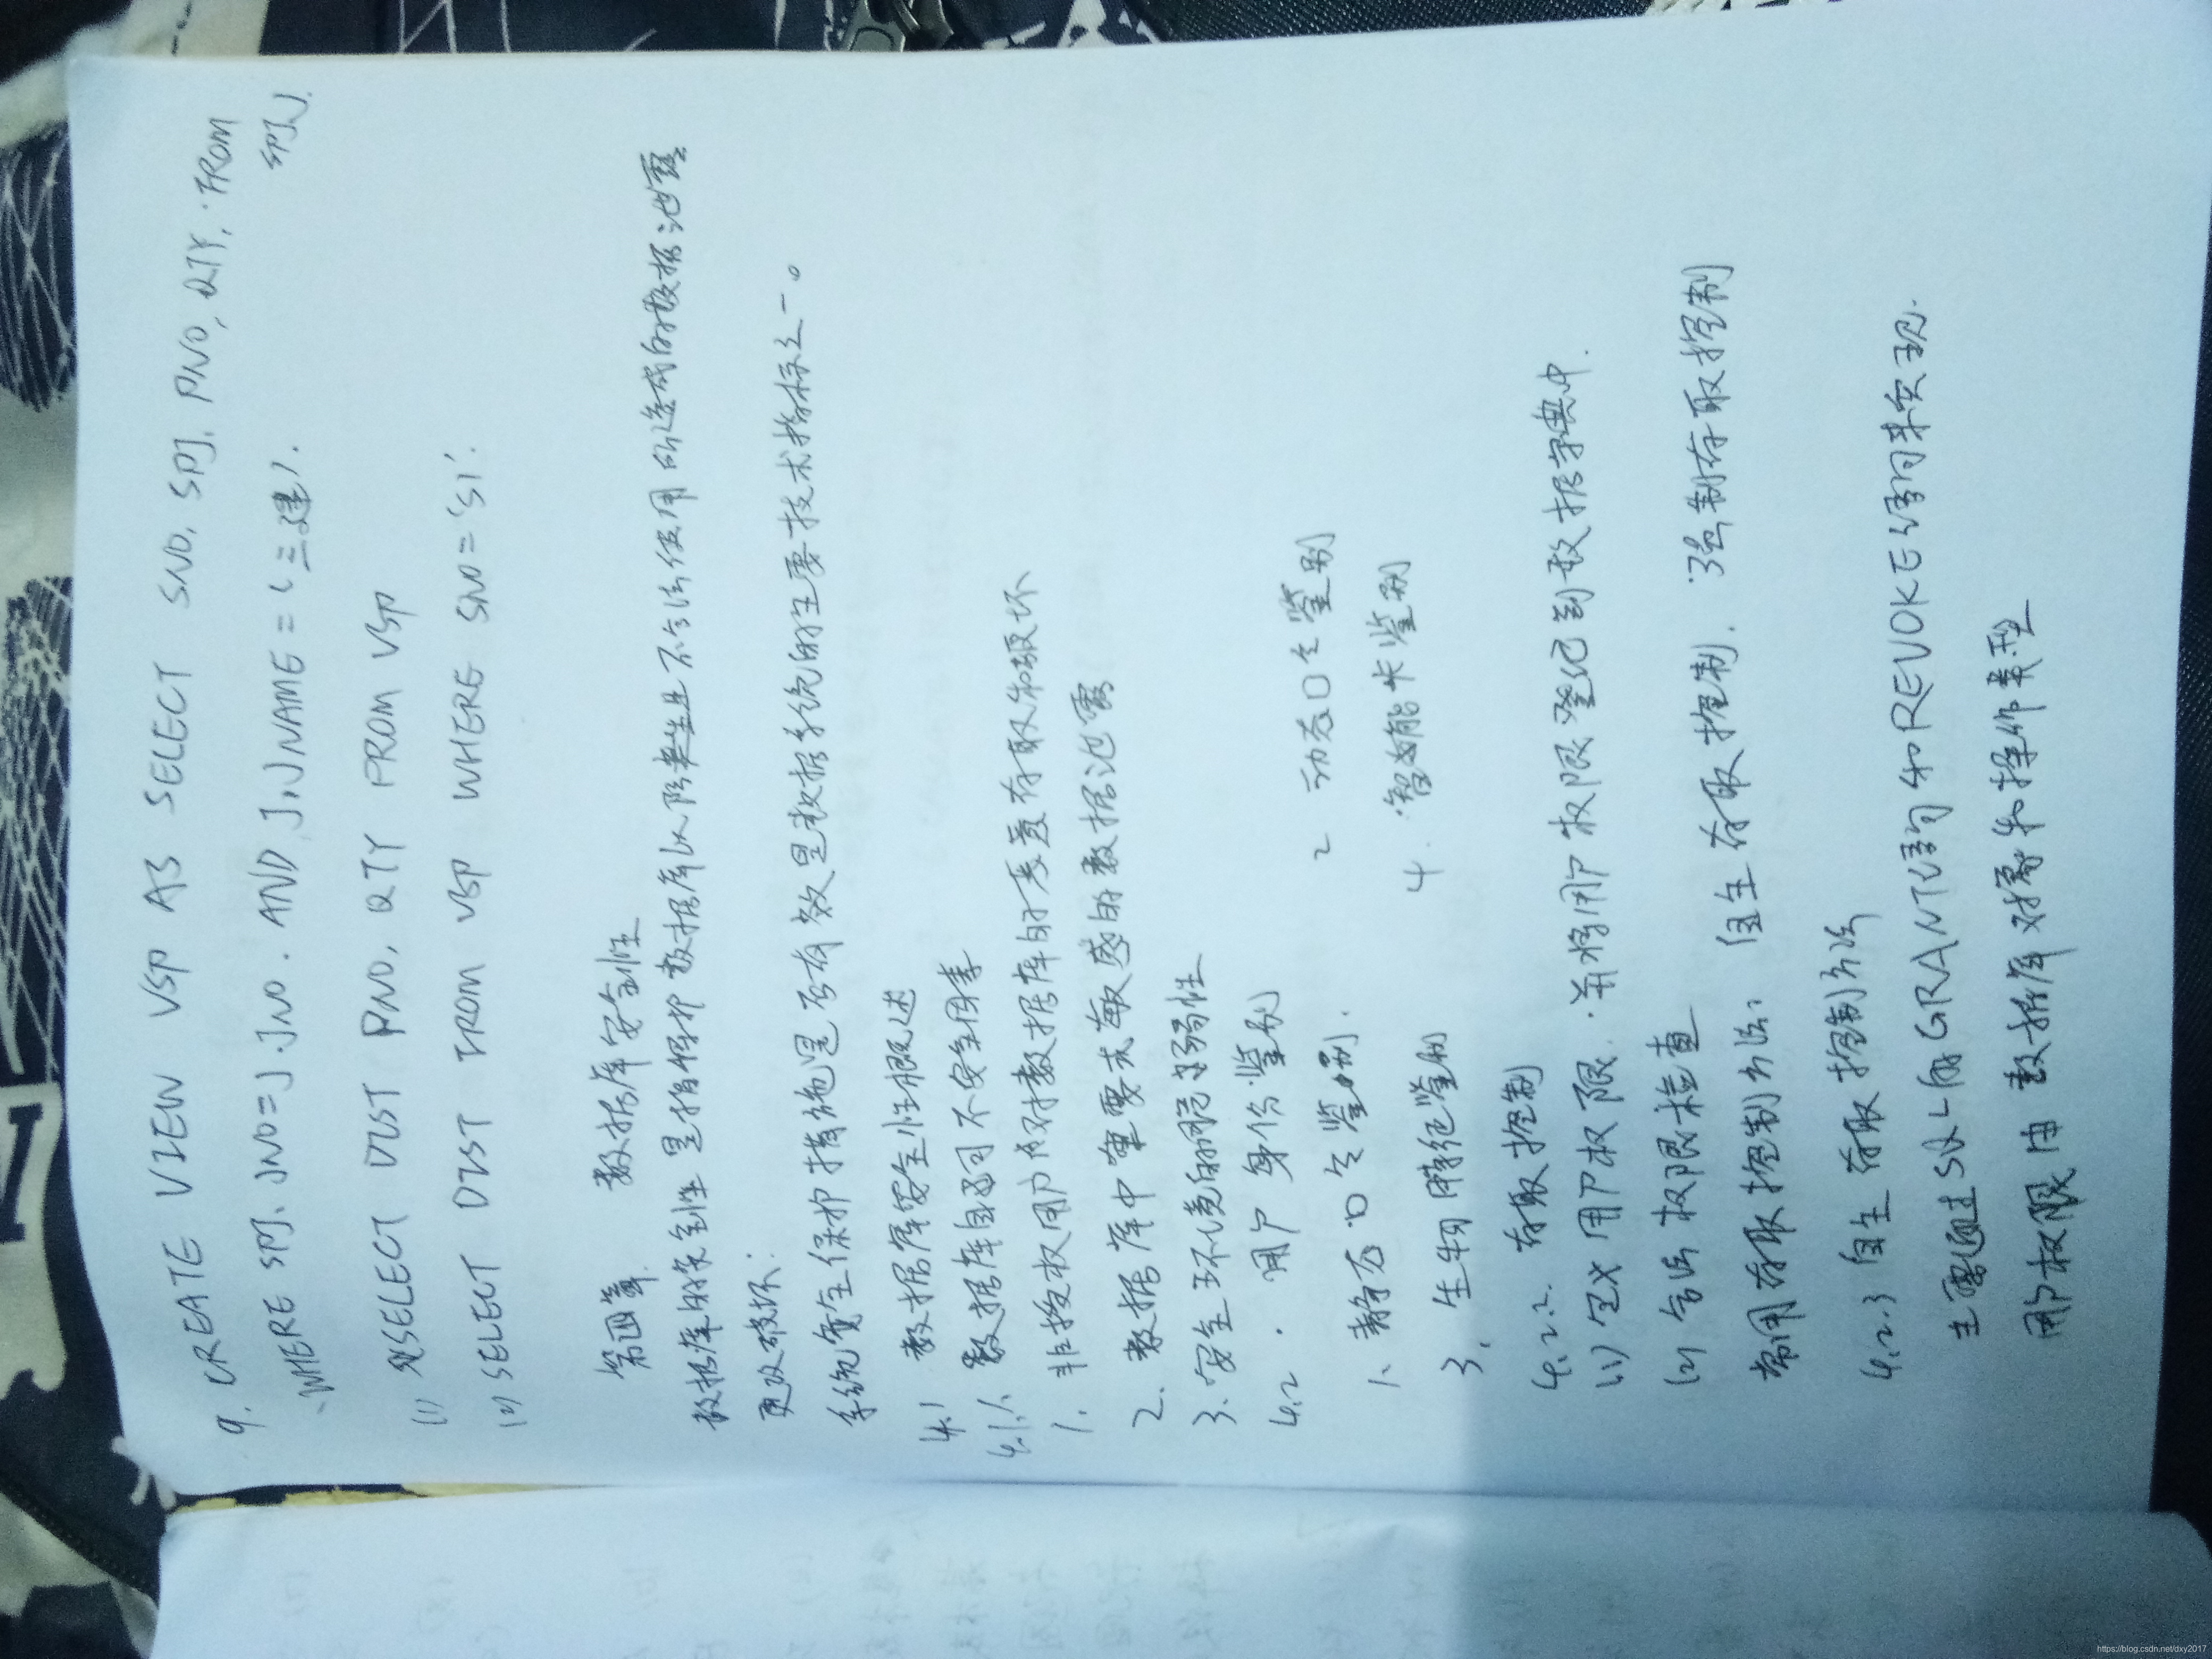 9. CREATE VIEW VSP AS SELECT SNO, SPJ, PNO, QTY, FROM
SPJ, J
WHERE SPJ.JNO=J.JNO. AND J.JNAME='三建'.
(1) SELECT DIST PNO, QTY FROM VSP
(2) SELECT DIST FROM VSP WHERE SNO='S1'.
第四章 数据库安全性
数据库的安全性是指保护数据库以防止不合法使用所造成的数据泄露
更改破坏:
系统安全保护措施是否有效是数据系统的主要技术指标之一。
4.1 数据库安全性概述
4.1.1. 数据库的不安全因素
1. 非授权用户对数据库的恶意存取和破坏
2. 数据库中重要或敏感的数据泄露
3. 安全环境的脆弱性
4.2. 用户身份鉴别
1. 静态口令鉴别. 2 动态口令鉴别
3. 生物特征鉴别 4. 智能卡鉴别
4.2.2. 存取控制
(1) 定义用户权限. 并将用户权限登记到数据字典中.
(2) 合法权限检查
常用存取控制方法: 自主存取控制. 强制存取控制
4.2.3 自主存取控制方法
主要通过SQL的GRANT语句和REVOKE语句来实现.
用户权限由数据库对象和操作类型
https://blog.csdn.net/dxy2017